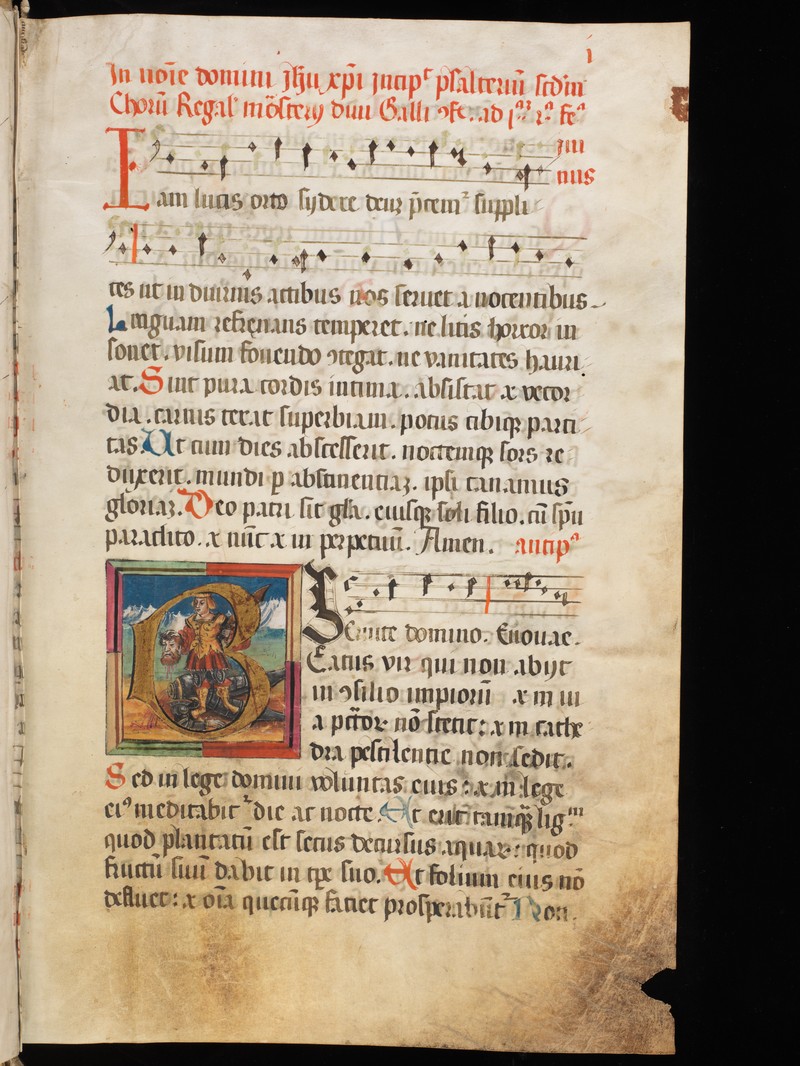 i
In noīe domini Jhu xp̄i incipͬ psalteriū scd̄m
Chorū Regal' mōstery diui Galli ꝯfe. ad jᵃᵐ rᵃ feᵃ
ym
nus
Iam lucis orto sydere deuʒ p̄cemᷣ suppli
ces ut in diurnis actibus nos seruet a nocentibus
Linguam refrenans temperet. ne litis horror in
sonet. visum fouendo ꝯtegat. ne vanitates hauri
at. Sint pura cordis intima. absistat ⁊ vecor
dia. carnis terat superbiam. potus cibiqꝫ parci
tas Ut cum dies abscesserit. noctemqꝫ sors re
duxerit. mundi p abstinentiaʒ. ipsi canamus
gloriaʒ. Deo patri sit gl̄a. eiusqꝫ soli filio. cū sp̄u
paraclito. ⁊ nūc ⁊ in perpetuū. Amen. antipᵃ
Seruite domino. Euouae.
Beatus vir qui non abijt
in ꝯsilio impiorū ⁊ in ui
a pc̄torꝝ nō stetit: ⁊ in cathe
dra pestilentie non sedit.
Sed in lege domini voluntas eius: ⁊ in lege
eiꝰ meditabitᷣ die ac nocte. Et erit tamqꝫ̄ ligᵐ
quod plantatū est secus decursus aquaꝝ: quod
fructū suū dabit in tp̄e suo. Et folium eius nō
defluet: ⁊ oīa quecūqꝫ faciet prosperabūtᷣ Non